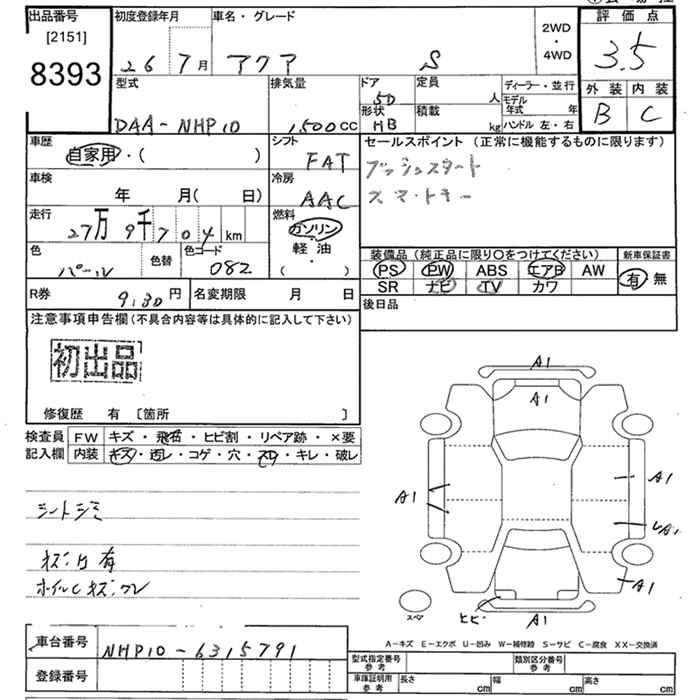 出品番号
[2151]
8393
初度登録年月
26 7月
車名・グレード
アクア S
2WD
・
4WD
評価点
3.5
外装 内装
B C
型式
DAA-NHP10
排気量
1,500cc
ドア
5D
形状
HB
定員
人
積載
kg
ディーラー・並行
モデル年式 年
ハンドル 左・右
車歴
自家用・( )
シフト
FAT
車検
年 月( 日)
冷房
AAC
走行
27万9千704km
燃料
ガソリン
軽・油
・
( )
色
パール
色替
色コード
082
セールスポイント (正常に機能するものに限ります)
プッシュスタート
スマートキー
装備品(純正品に限り〇をつけてください)
PS PW ABS エアB AW
SR ナビ TV カワ
新車保証書
有 無
R券
9,130円
名変期限 月 日
後日品
注意事項申告欄(不具合内容等は具体的に記入して下さい)
初出品
修復歴 有 [箇所 ]
検査員記入欄
FW キズ・飛石・ヒビ割・リペア跡・×要
内装 キズ・汚レ・コゲ・穴・スレ・キレ・破レ
シートシミ
キズ・凹有
ホイルCキズ、クレ
A1
A1
A1
A1
A1
A1
ヒビ
A1
スペア
A-キズ E-エクボ U-凹み W-補修跡 S-サビ C-腐食 XX-交換済
車台番号
NHP10-6315791
登録番号
型式指定番号 参考
類別区分番号 参考
車庫証明用 参考
長さ cm
幅 cm
高さ cm